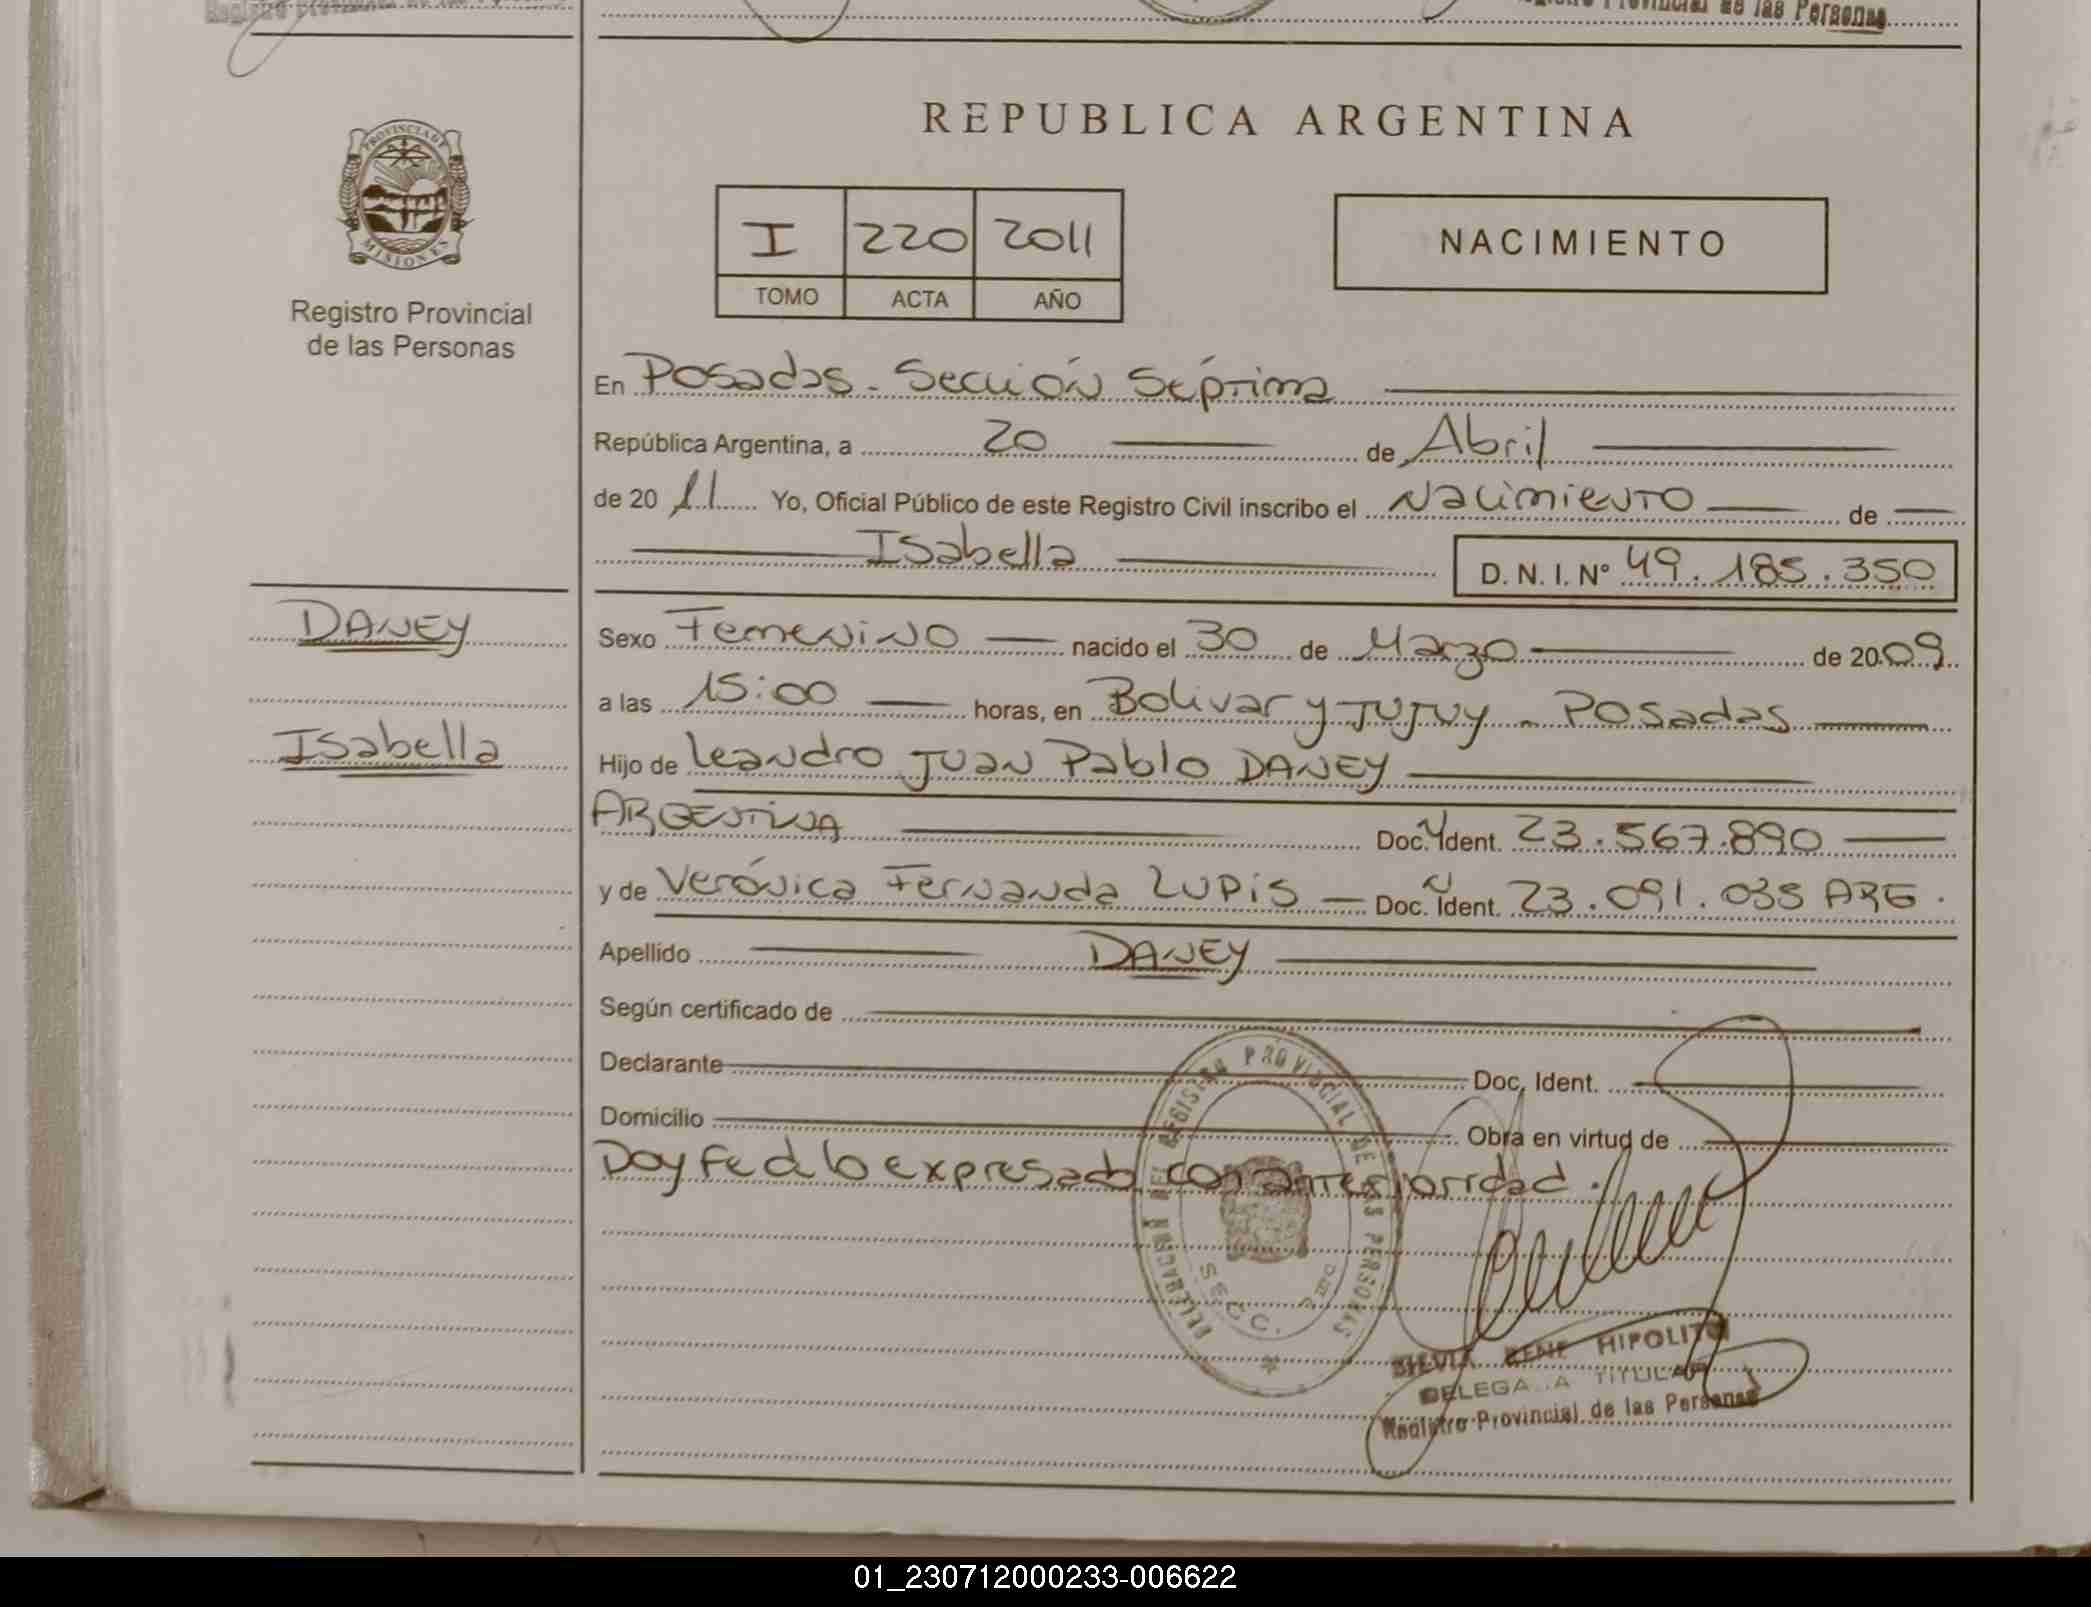 Registro Provincial de las Personas
REPUBLICA ARGENTINA
PROVINCIA DE
MISIONES
Registro Provincial
de las Personas
I 220 2011
TOMO ACTA AÑO
NACIMIENTO
En Posadas - Sección Séptima
República Argentina, a 20 de Abril
de 20 11 Yo, Oficial Público de este Registro Civil inscribo el Nacimiento de
Isabella D. N. I. N° 49.185.350
DANEY
Sexo Femenino nacido el 30 de Marzo de 20 09
a las 15:00 horas, en Bolivar y Jujuy - Posadas
Isabella
Hijo de Leandro Juan Pablo DANEY
ARGENTINA Doc. Ident. 23.567.890
y de Verónica Fernanda Lupis Doc. Ident. 23.091.035 ARG.
Apellido DANEY
Según certificado de
Declarante Doc. Ident.
Domicilio Obra en virtud de
Doy fe d lo expresado con anterioridad.
DELEGACION DEL REGISTRO PROVINCIAL DE LAS PERSONAS
SECC.
SILVIA RENE HIPOLITO
DELEGA A TITULAR
Registro Provincial de las Personas
01_230712000233-006622